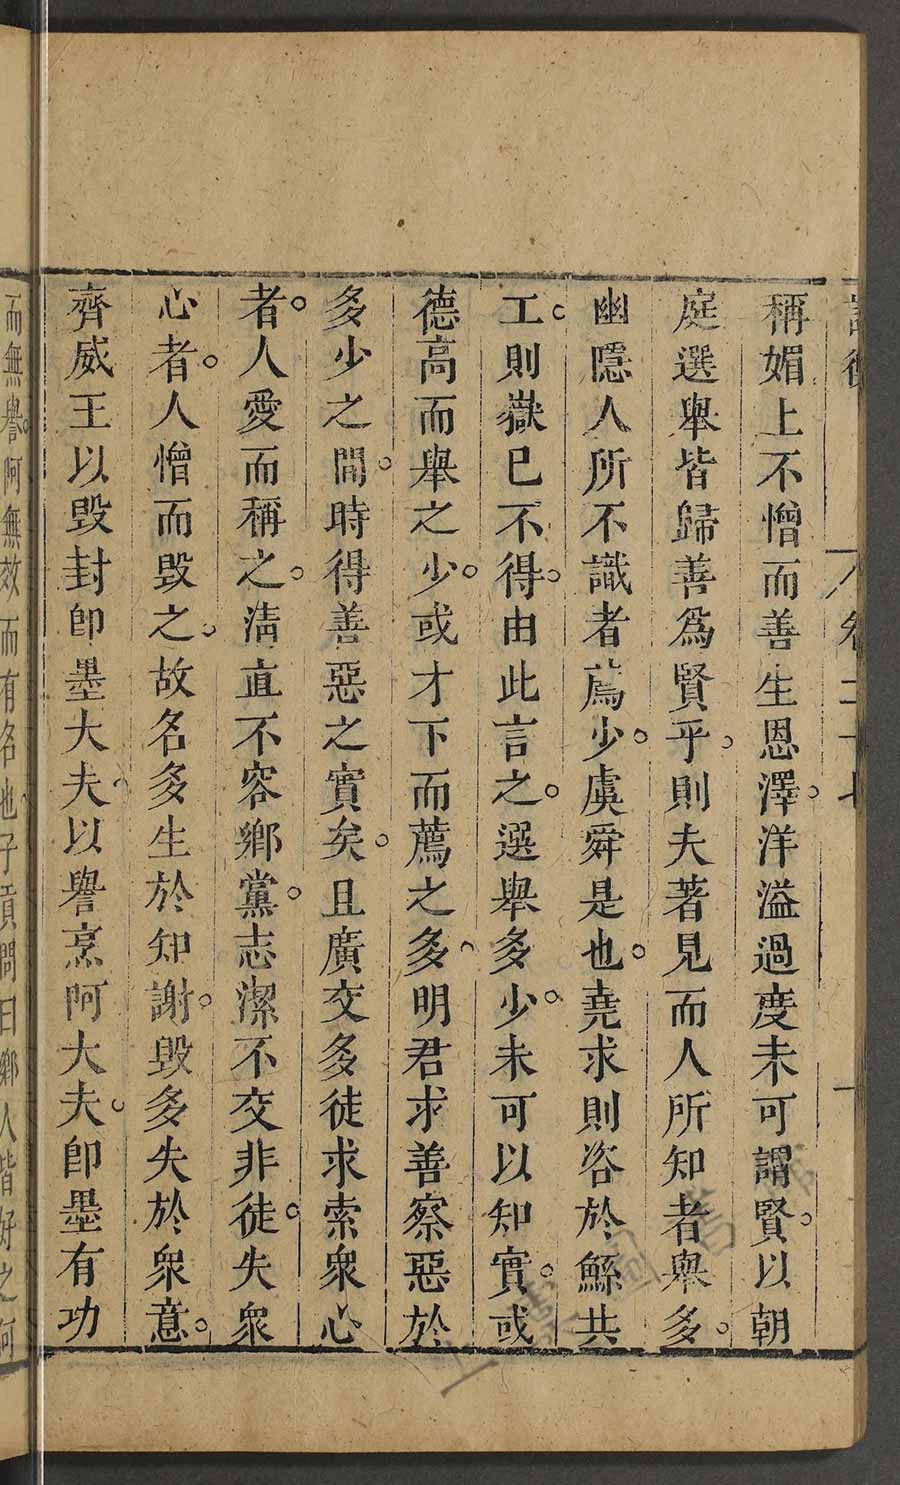 論衡 卷二十七
稱媚上不憎而善生恩澤。洋溢過度未可謂賢。以朝
庭選舉皆歸善爲賢乎。則夫著見而人所知者舉多。
幽隱人所不識者薦少。虞舜是也。堯求則咨於鯀共
工。則嶽已不得。由此言之。選舉多少。未可以知實。或
德高而舉之少。或才下而薦之多。明君求善察惡於
多少之間。時得善惡之實矣。且廣交多徒求索衆心
者。人愛而稱之。清直不容鄉黨。志潔不交非徒。失衆
心者。人憎而毀之。故名多生於知謝。毀多失於衆意。
齊威王以毀封卽墨大夫。以譽烹阿大夫。卽墨有功
而無譽。阿無效而有名也。子貢問曰鄉人皆好之何